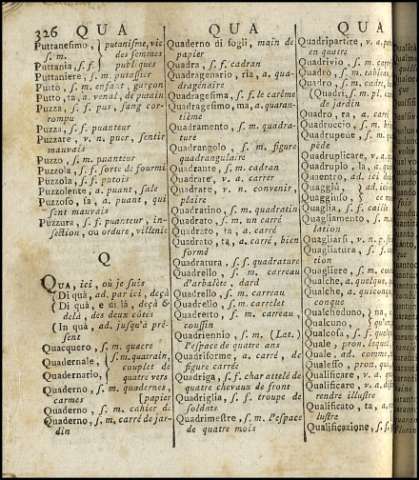 326 QUA QUA QUA
Puttanesimo, } putanisme, vic
s. m. } des femmes
Puttania, s. f. } publiques
Puttaniere, s. m. putassier
Putto, s. m. enfant, garçon
Putto, ta, a. venal, de putain
Puzza, s. f. pus, sang cor-
rompu
Puzza, s. f. puanteur
Puzzare, v. n. puer, sentir
mauvais
Puzzo, s. m. puanteur
Puzzola, s. f. sorte de fourmi
Puzzola, s. f. putois
Puzzolente, a. puant, sale
Puzzoso, sa, a. puant, qui
sent mauvais
Puzzura, s. f. puanteur, in-
fection, ou ordure, villenie
Q
QUA, ici, où je suis
(Di quà, ad. par ici, deçà
(Di quà, e di là, deçà &
delà, des deux côtés
(In quà, ad. jusqu'à pré-
sent
Quacquero, s. m. quacre
Quadernale, } s. m. quatrain,
} couplet de
Quadernario, } quatre vers
Quaderno, s. m. quadernes,
carmes [papier
Quaderno, s. m. cahier de
Quaderno, s. m. carré de jar-
din
Quaderno di fogli, main de
papier
Quadra, s. f. cadran
Quadragenario, ria, a. qua-
dragenaire
Quadragesima, s. f. le carême
Quadragesimo, ma, a. quaran-
tième
Quadramento, s. m. quadra-
ture
Quadrangolo, s. m. figure
quadrangulaire
Quadrante, s. m. cadran
Quadrare, v. a. carrer
Quadrare, v. n. convenir,
plaire
Quadratino, s. m. quadratin
Quadrato, s. m. un carré
Quadrato, ta, a. carré
Quadrato, ta, a. carré, bien
formé
Quadratura, s. f. quadrature
Quadrello, s. m. carreau
d'arbalête, dard
Quadrello, s. m. carreau
Quadrello, s. m. carrelet
Quadretto, s. m. carreau,
coussin
Quadriennio, s. m. (Lat.)
l'espace de quatre ans
Quadriforme, a. carré, de
figure carrée
Quadriga, s. f. char attelé de
quatre chevaux de front
Quadriglia, s. f. troupe de
soldats
Quadrimestre, s. m. l'espace
de quatre mois
Quadripartire, v. a.
en quatre
Quadrivio, s. m.
Quadro, s. m.
Quadro, s. m.
(Quadri, s. m. pl.
de jardin
Quadro, ta, a.
Quadruccio, s. m.
Quadrupede, s. m.
pède
Quadruplicare, v. a.
Quadruplo, la, a.
Quaentro, ad. ici
Quaggiù, ad. ici
Quaggiuso,
Quaglia, s. f. caille
Quagliamento, s. m.
lation
Quagliarsi, v. n. p.
Quagliatura, s. f.
tion
Quagliere, s. m.
Qualche, a. quelque,
Qualch'un, a.
conque
Qualcheduno, }
Qualcuno, }
Qualcosa, s. f.
Quale, pron. lequel
Quale, ad. comme
Qualesso, pron.
Qualificare, v. a.
Qualificare, v. a.
rendre illustre
Qualificato, ta, a.
lustre
Qualificazione, s. f.